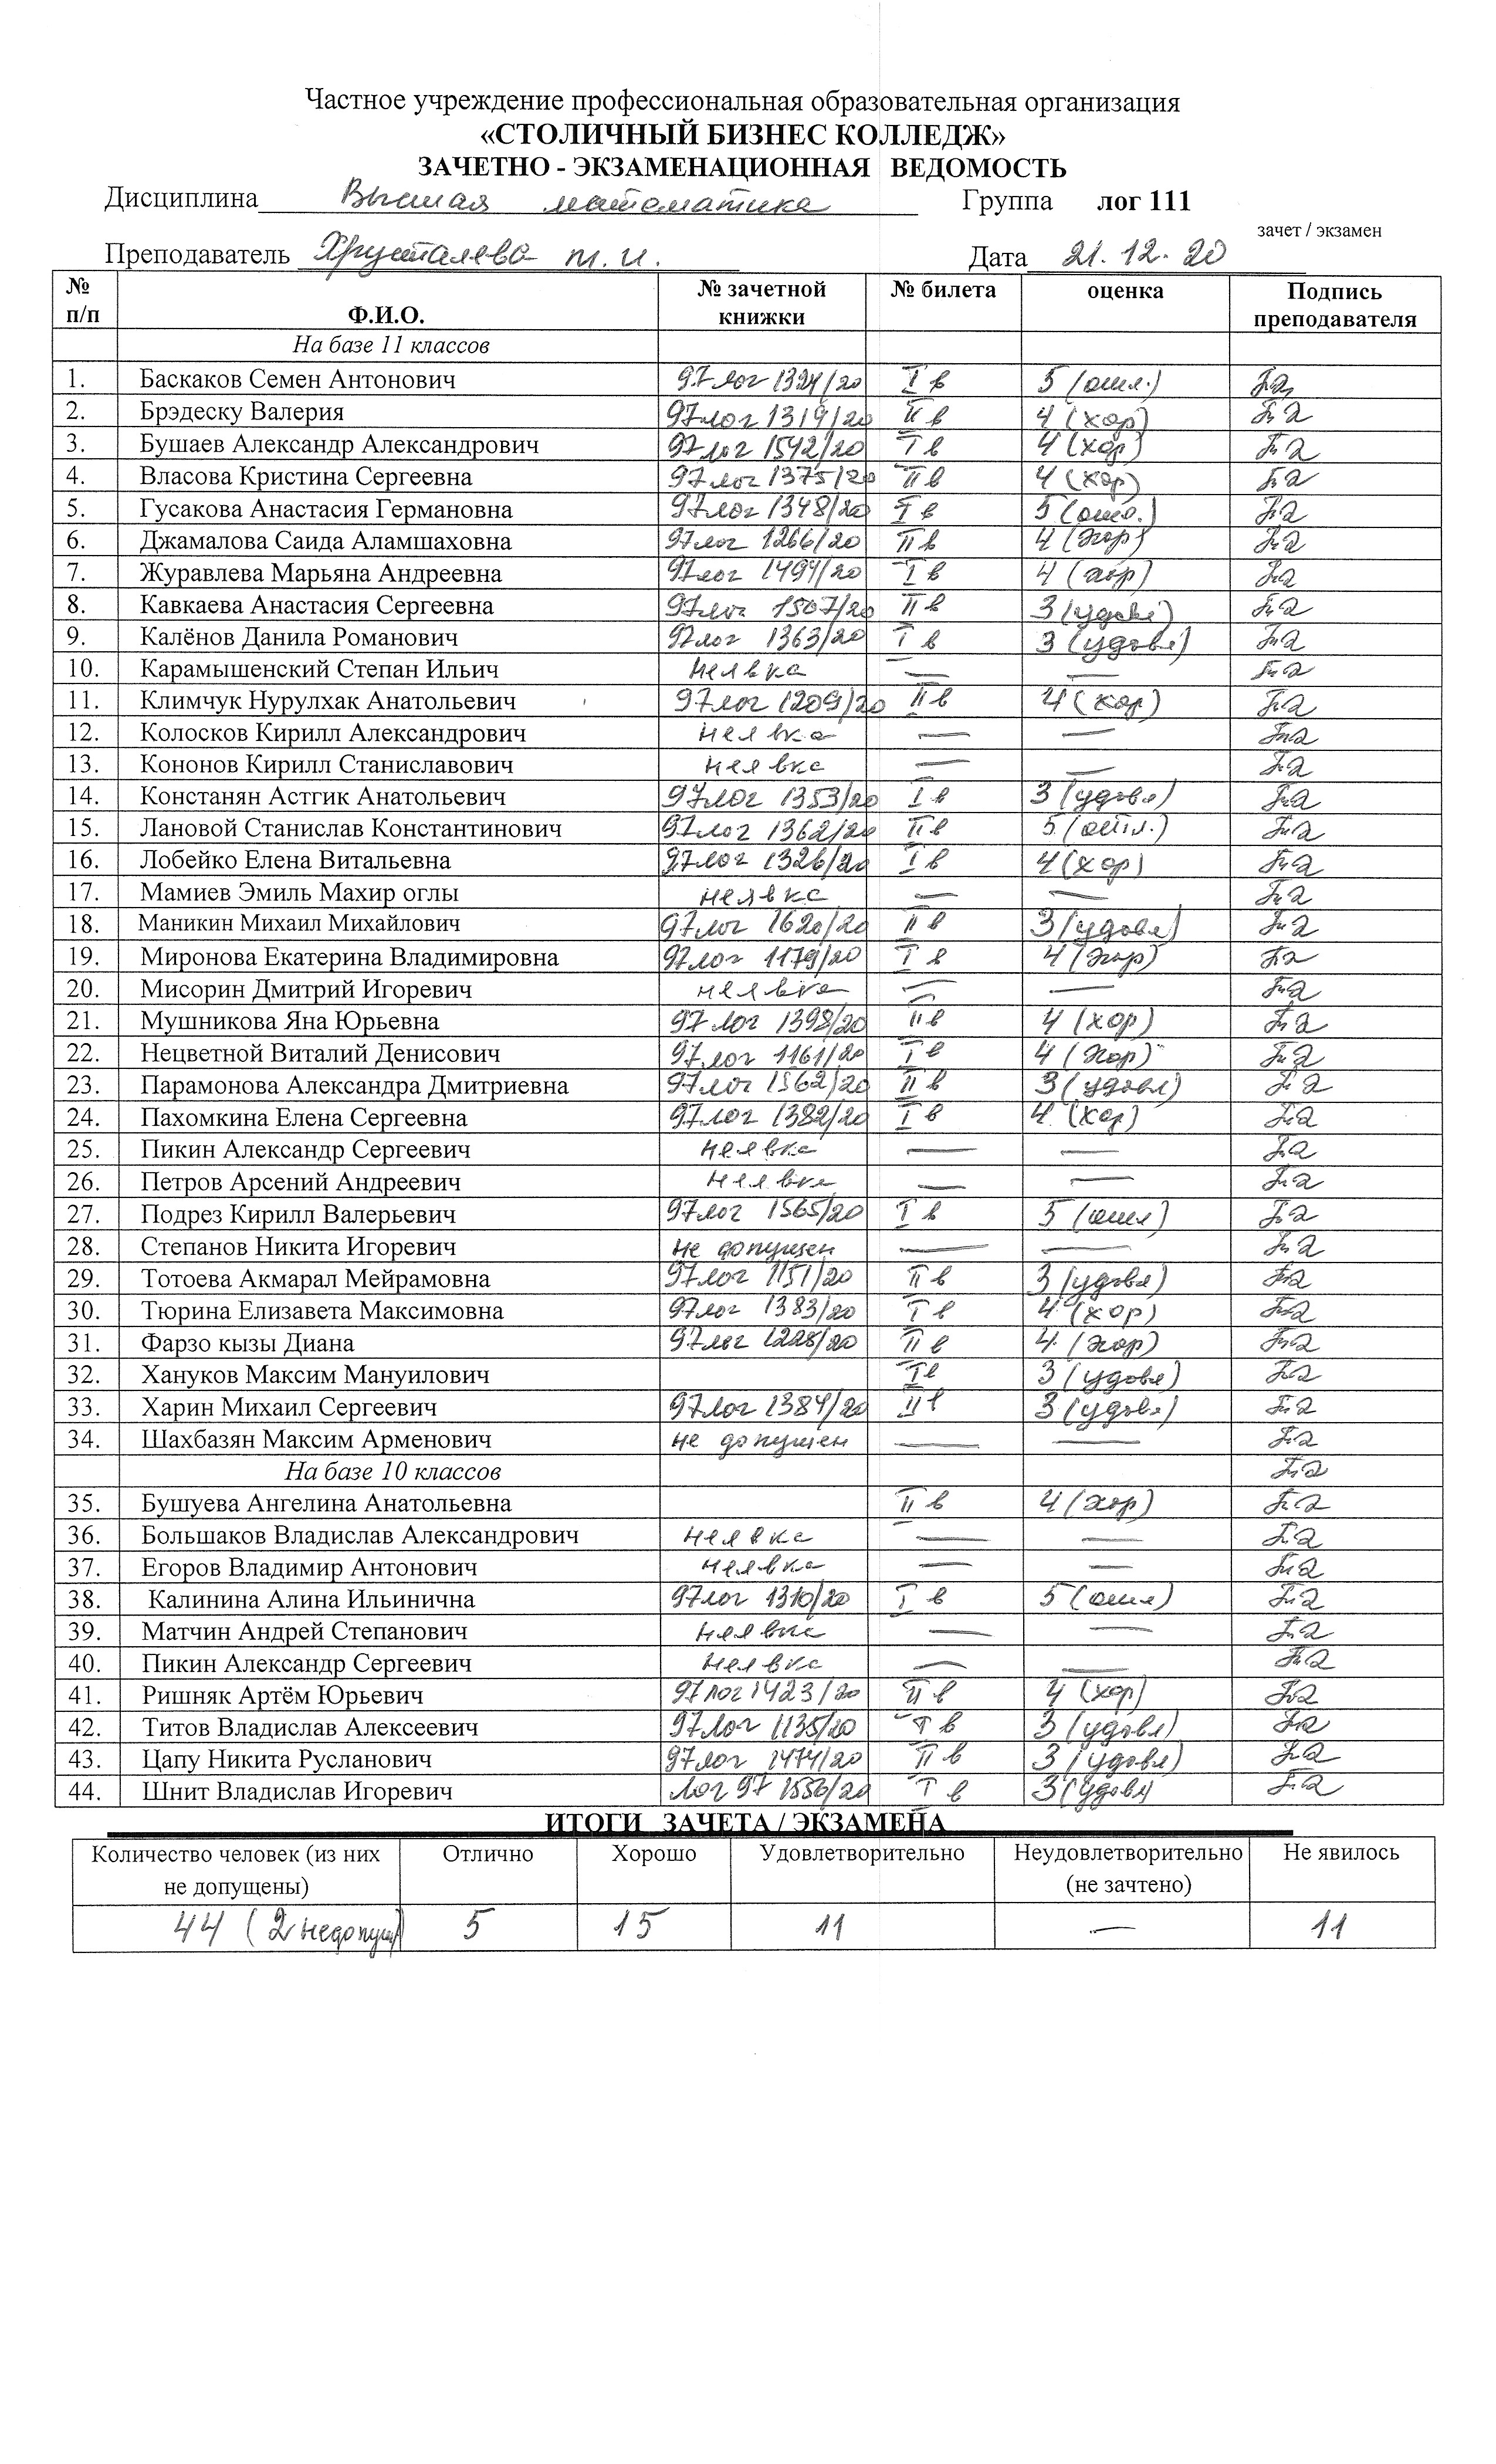 Частное учреждение профессиональная образовательная организация
«СТОЛИЧНЫЙ БИЗНЕС КОЛЛЕДЖ»
ЗАЧЕТНО - ЭКЗАМЕНАЦИОННАЯ ВЕДОМОСТЬ
Дисциплина Высшая математика Группа лог 111
зачет / экзамен
Преподаватель Хрусталева Т.И. Дата 21.12.20
№ п/п Ф.И.О. № зачетной книжки № билета оценка Подпись преподавателя
На базе 11 классов
1. Баскаков Семен Антонович 97лог 1324/20 I в 5 (отл.)
2. Брэдеску Валерия 97лог 1319/20 II в 4 (хор)
3. Бушаев Александр Александрович 97лог 1542/20 I в 4 (хор)
4. Власова Кристина Сергеевна 97лог 1375/20 II в 4 (хор)
5. Гусакова Анастасия Германовна 97лог 1348/20 I в 5 (отл.)
6. Джамалова Саида Аламшаховна 97лог 1266/20 II в 4 (хор)
7. Журавлева Марьяна Андреевна 97лог 1497/20 I в 4 (хор)
8. Кавкаева Анастасия Сергеевна 97лог 1507/20 II в 3 (удовл)
9. Калёнов Данила Романович 97лог 1363/20 I в 3 (удовл)
10. Карамышенский Степан Ильич неявка — —
11. Климчук Нурулхак Анатольевич 97лог 1209/20 II в 4 (хор)
12. Колосков Кирилл Александрович неявка — —
13. Кононов Кирилл Станиславович неявка — —
14. Констанян Астгик Анатольевич 97лог 1353/20 I в 3 (удовл)
15. Лановой Станислав Константинович 97лог 1362/20 II в 5 (отл.)
16. Лобейко Елена Витальевна 97лог 1326/20 I в 4 (хор)
17. Мамиев Эмиль Махир оглы неявка — —
18. Маникин Михаил Михайлович 97лог 1620/20 II в 3 (удовл)
19. Миронова Екатерина Владимировна 97лог 1179/20 I в 4 (хор)
20. Мисорин Дмитрий Игоревич неявка — —
21. Мушникова Яна Юрьевна 97лог 1398/20 II в 4 (хор)
22. Нецветной Виталий Денисович 97лог 1161/20 I в 4 (хор)
23. Парамонова Александра Дмитриевна 97лог 1562/20 II в 3 (удовл)
24. Пахомкина Елена Сергеевна 97лог 1382/20 I в 4 (хор)
25. Пикин Александр Сергеевич неявка — —
26. Петров Арсений Андреевич неявка — —
27. Подрез Кирилл Валерьевич 97лог 1565/20 I в 5 (отл)
28. Степанов Никита Игоревич не допущен — —
29. Тотоева Акмарал Мейрамовна 97лог 1151/20 II в 3 (удовл)
30. Тюрина Елизавета Максимовна 97лог 1383/20 I в 4 (хор)
31. Фарзо кызы Диана 97лог 1228/20 II в 4 (хор)
32. Хануков Максим Мануилович I в 3 (удовл)
33. Харин Михаил Сергеевич 97лог 1384/20 II в 3 (удовл)
34. Шахбазян Максим Арменович не допущен — —
На базе 10 классов
35. Бушуева Ангелина Анатольевна II в 4 (хор)
36. Большаков Владислав Александрович неявка — —
37. Егоров Владимир Антонович неявка — —
38. Калинина Алина Ильинична 97лог 1310/20 I в 5 (отл)
39. Матчин Андрей Степанович неявка — —
40. Пикин Александр Сергеевич неявка — —
41. Ришняк Артём Юрьевич 97лог 1423/20 II в 4 (хор)
42. Титов Владислав Алексеевич 97лог 1135/20 I в 3 (удовл)
43. Цапу Никита Русланович 97лог 1474/20 II в 3 (удовл)
44. Шнит Владислав Игоревич лог 97 1556/20 I в 3 (удовл)
ИТОГИ ЗАЧЕТА / ЭКЗАМЕНА
Количество человек (из них не допущены) Отлично Хорошо Удовлетворительно Неудовлетворительно (не зачтено) Не явилось
44 (2 недопущ) 5 15 11 — 11